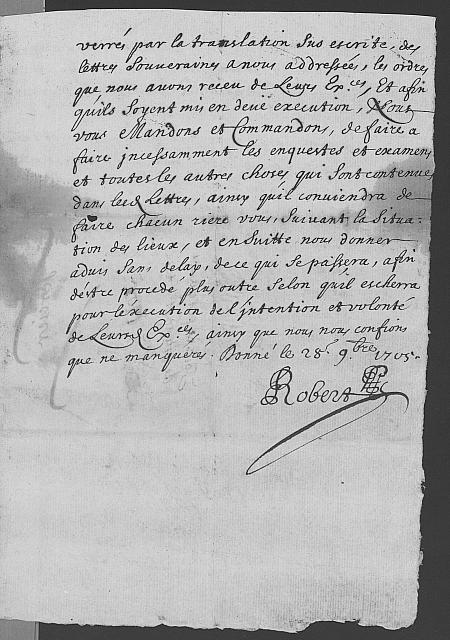 verrés par la translation sus escrite, des
lettres Souveraines a nous addressées, les ordres
que nous avons receu de Leurs Ex.ces, Et afin
qu'ils soyent mis en deüe execution, Nous
vous Mandons et Commandons, de faire a
faire incessamment les enquestes et examens
et toutes les autres choses qui sont contenues
dans les Lettres, ainsy qu'il conviendra de
faire chacun riere vous, suivant la Situa-
tion des lieux, et en suitte nous donner
advis sans delay, de ce qui se passera, afin
d'estre procedé plus outre selon qu'il escherra
pour l'éxecution de l'intention et volonté
de Leurs Ex.ces, ainsy que nous nous confions
que ne manquéres. Donné le 28.e 9.bre 1705.
Robert